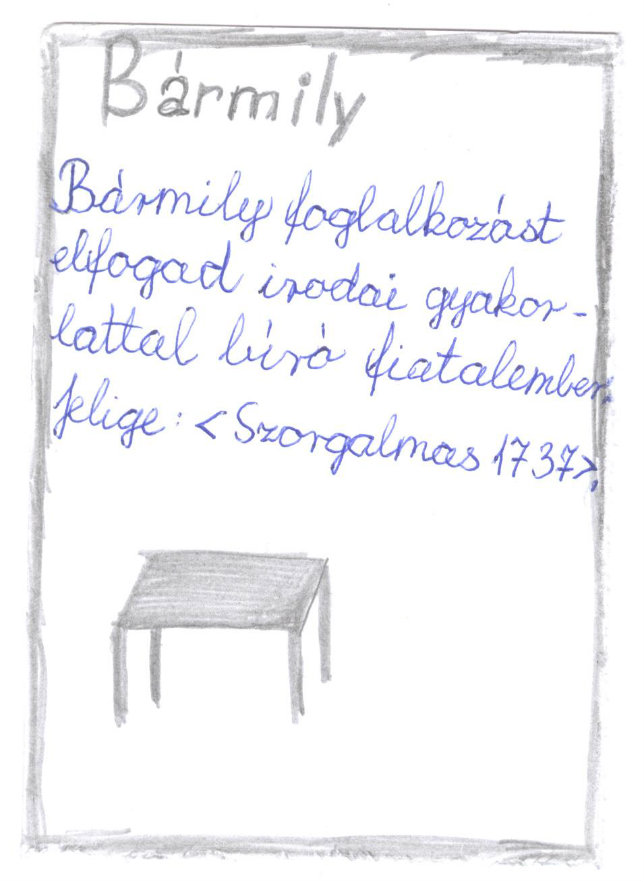 Bármily
Bármily foglalkozást
elfogad irodai gyakor-
lattal bíró fiatalember.
Jelige: <Szorgalmas 1737>.